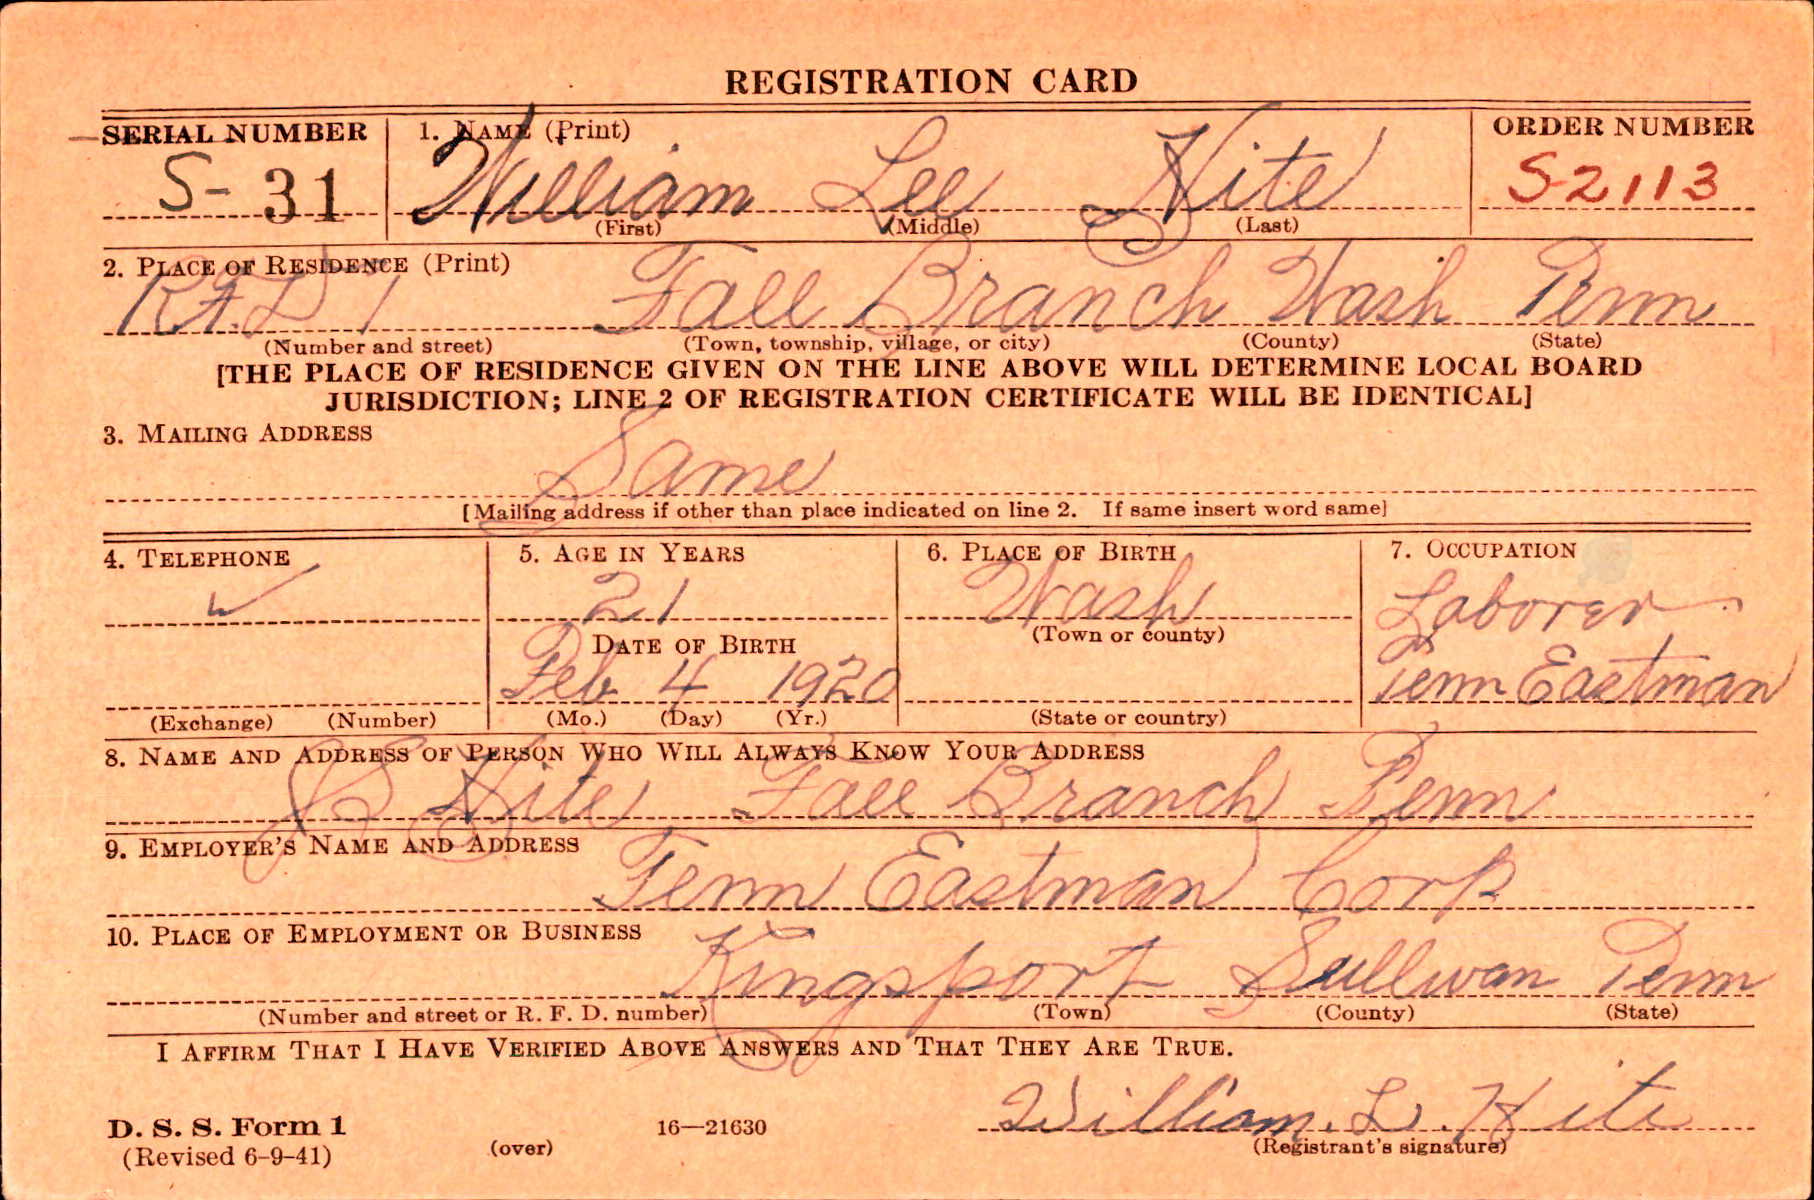 REGISTRATION CARD
SERIAL NUMBER 1. NAME (Print) ORDER NUMBER
S- 31 William Lee Hite S-2113
(First) (Middle) (Last)
2. PLACE OF RESIDENCE (Print)
R.F.D 1 Fall Branch Wash Tenn
(Number and street) (Town, township, village, or city) (County) (State)
[THE PLACE OF RESIDENCE GIVEN ON THE LINE ABOVE WILL DETERMINE LOCAL BOARD
JURISDICTION; LINE 2 OF REGISTRATION CERTIFICATE WILL BE IDENTICAL]
3. MAILING ADDRESS
Same
[Mailing address if other than place indicated on line 2. If same insert word same]
4. TELEPHONE 5. AGE IN YEARS 6. PLACE OF BIRTH 7. OCCUPATION
21 Wash Laborer
DATE OF BIRTH (Town or county)
Feb 4 1920 Tenn Eastman
(Exchange) (Number) (Mo.) (Day) (Yr.) (State or country)
8. NAME AND ADDRESS OF PERSON WHO WILL ALWAYS KNOW YOUR ADDRESS
Hite Fall Branch Tenn
9. EMPLOYER'S NAME AND ADDRESS
Tenn Eastman Corp
10. PLACE OF EMPLOYMENT OR BUSINESS
Kingsport Sullivan Tenn
(Number and street or R. F. D. number) (Town) (County) (State)
I AFFIRM THAT I HAVE VERIFIED ABOVE ANSWERS AND THAT THEY ARE TRUE.
William. L. Hite
D. S. S. Form 1 16—21630
(Revised 6-9-41) (over) (Registrant's signature)